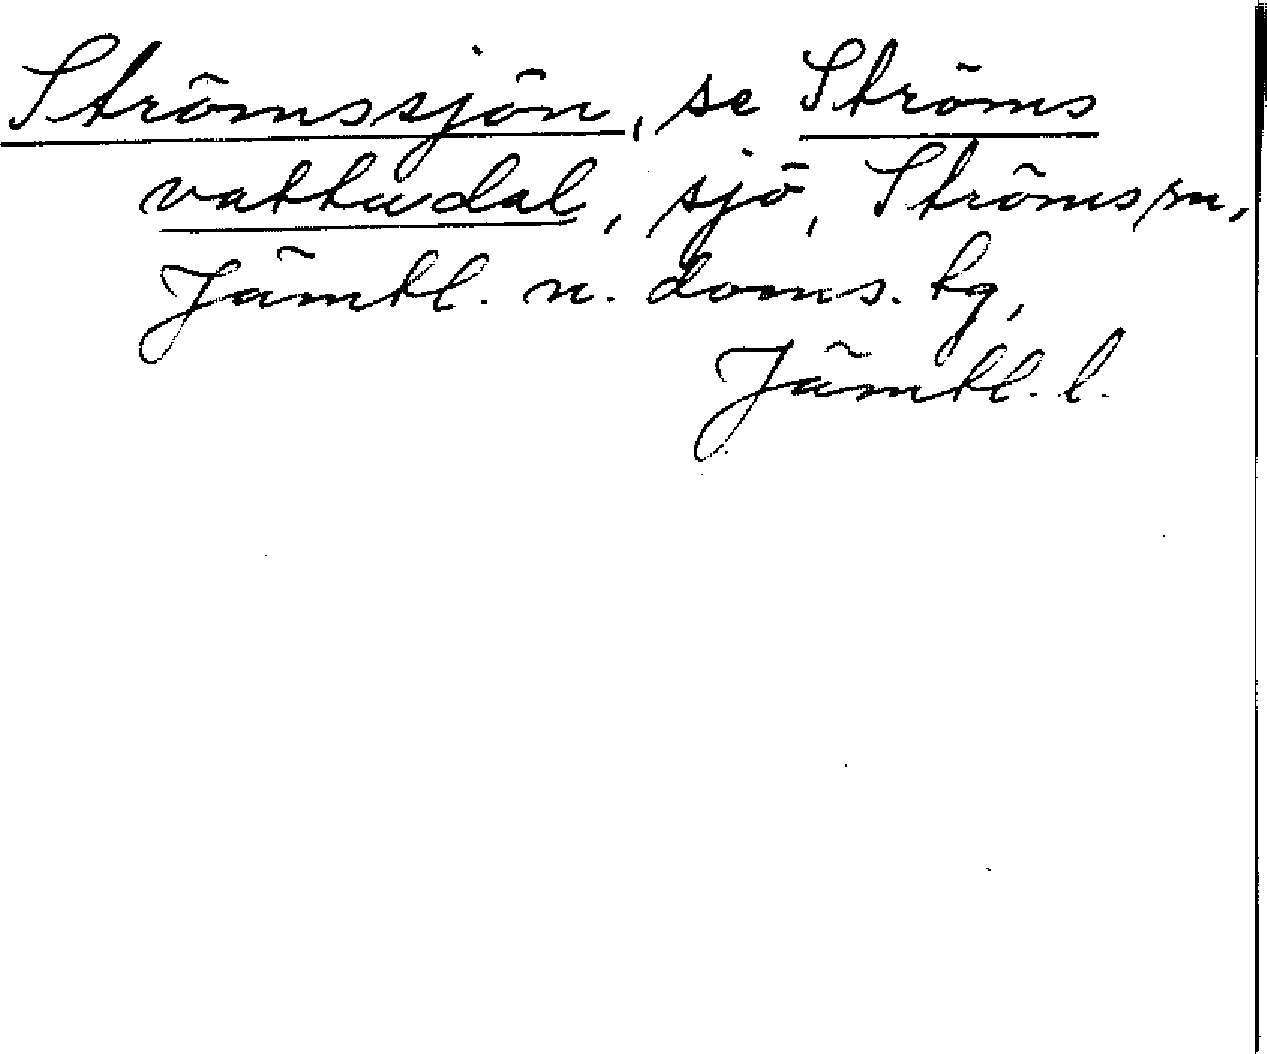 Strömssjön, se Ströms
vattudal, sjö, Ströms sn,
Jämtl. n. doms. tg,
Jämtl. l.